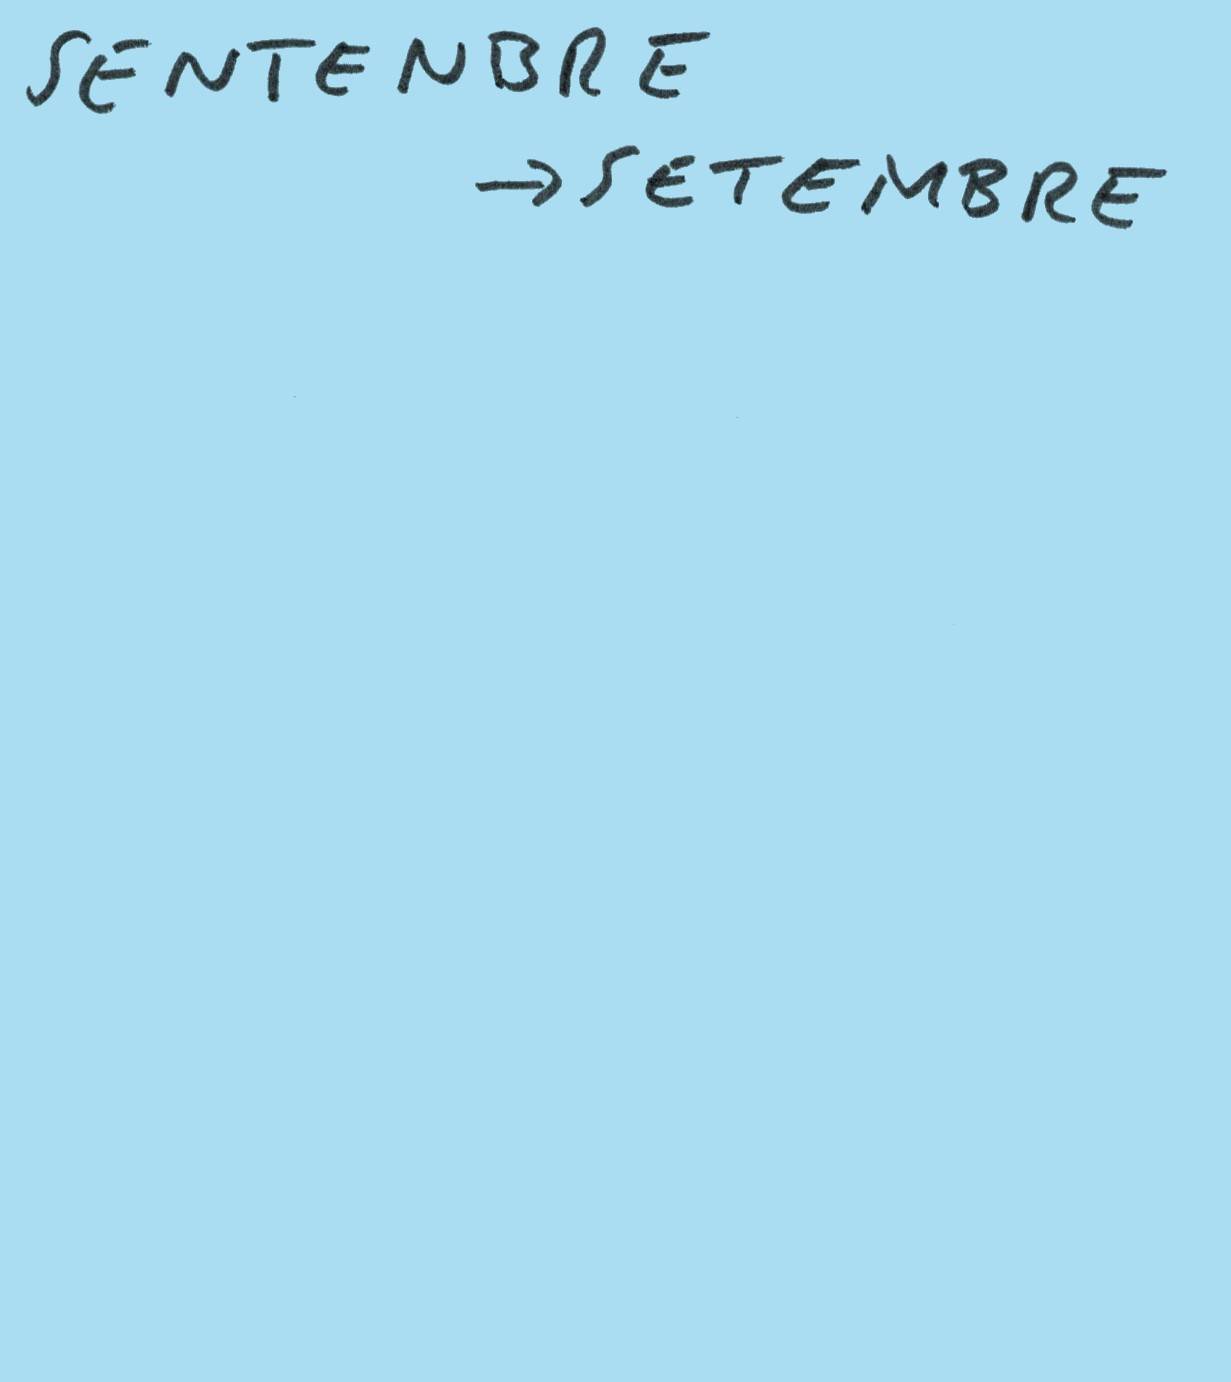 SENTENBRE
→SETEMBRE